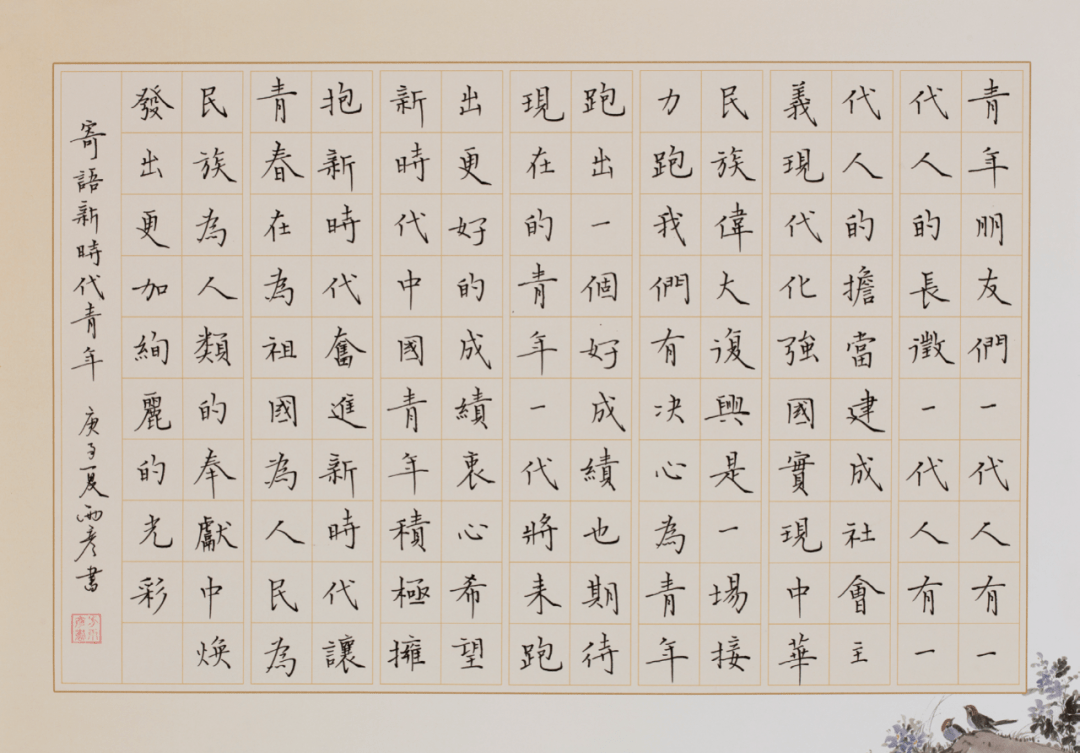 青年朋友們一代人有一
代人的長徵一代人有一
代人的擔當建成社會主
義現代化強國實現中華
民族偉大復興是一場接
力跑我們有決心為青年
跑出一個好成績也期待
現在的青年一代將来跑
出更好的成績衷心希望
新時代中國青年積極擁
抱新時代奮進新時代讓
青春在為祖國為人民為
民族為人類的奉獻中煥
發出更加絢麗的光彩
寄語新時代青年 庚子夏雨彦書